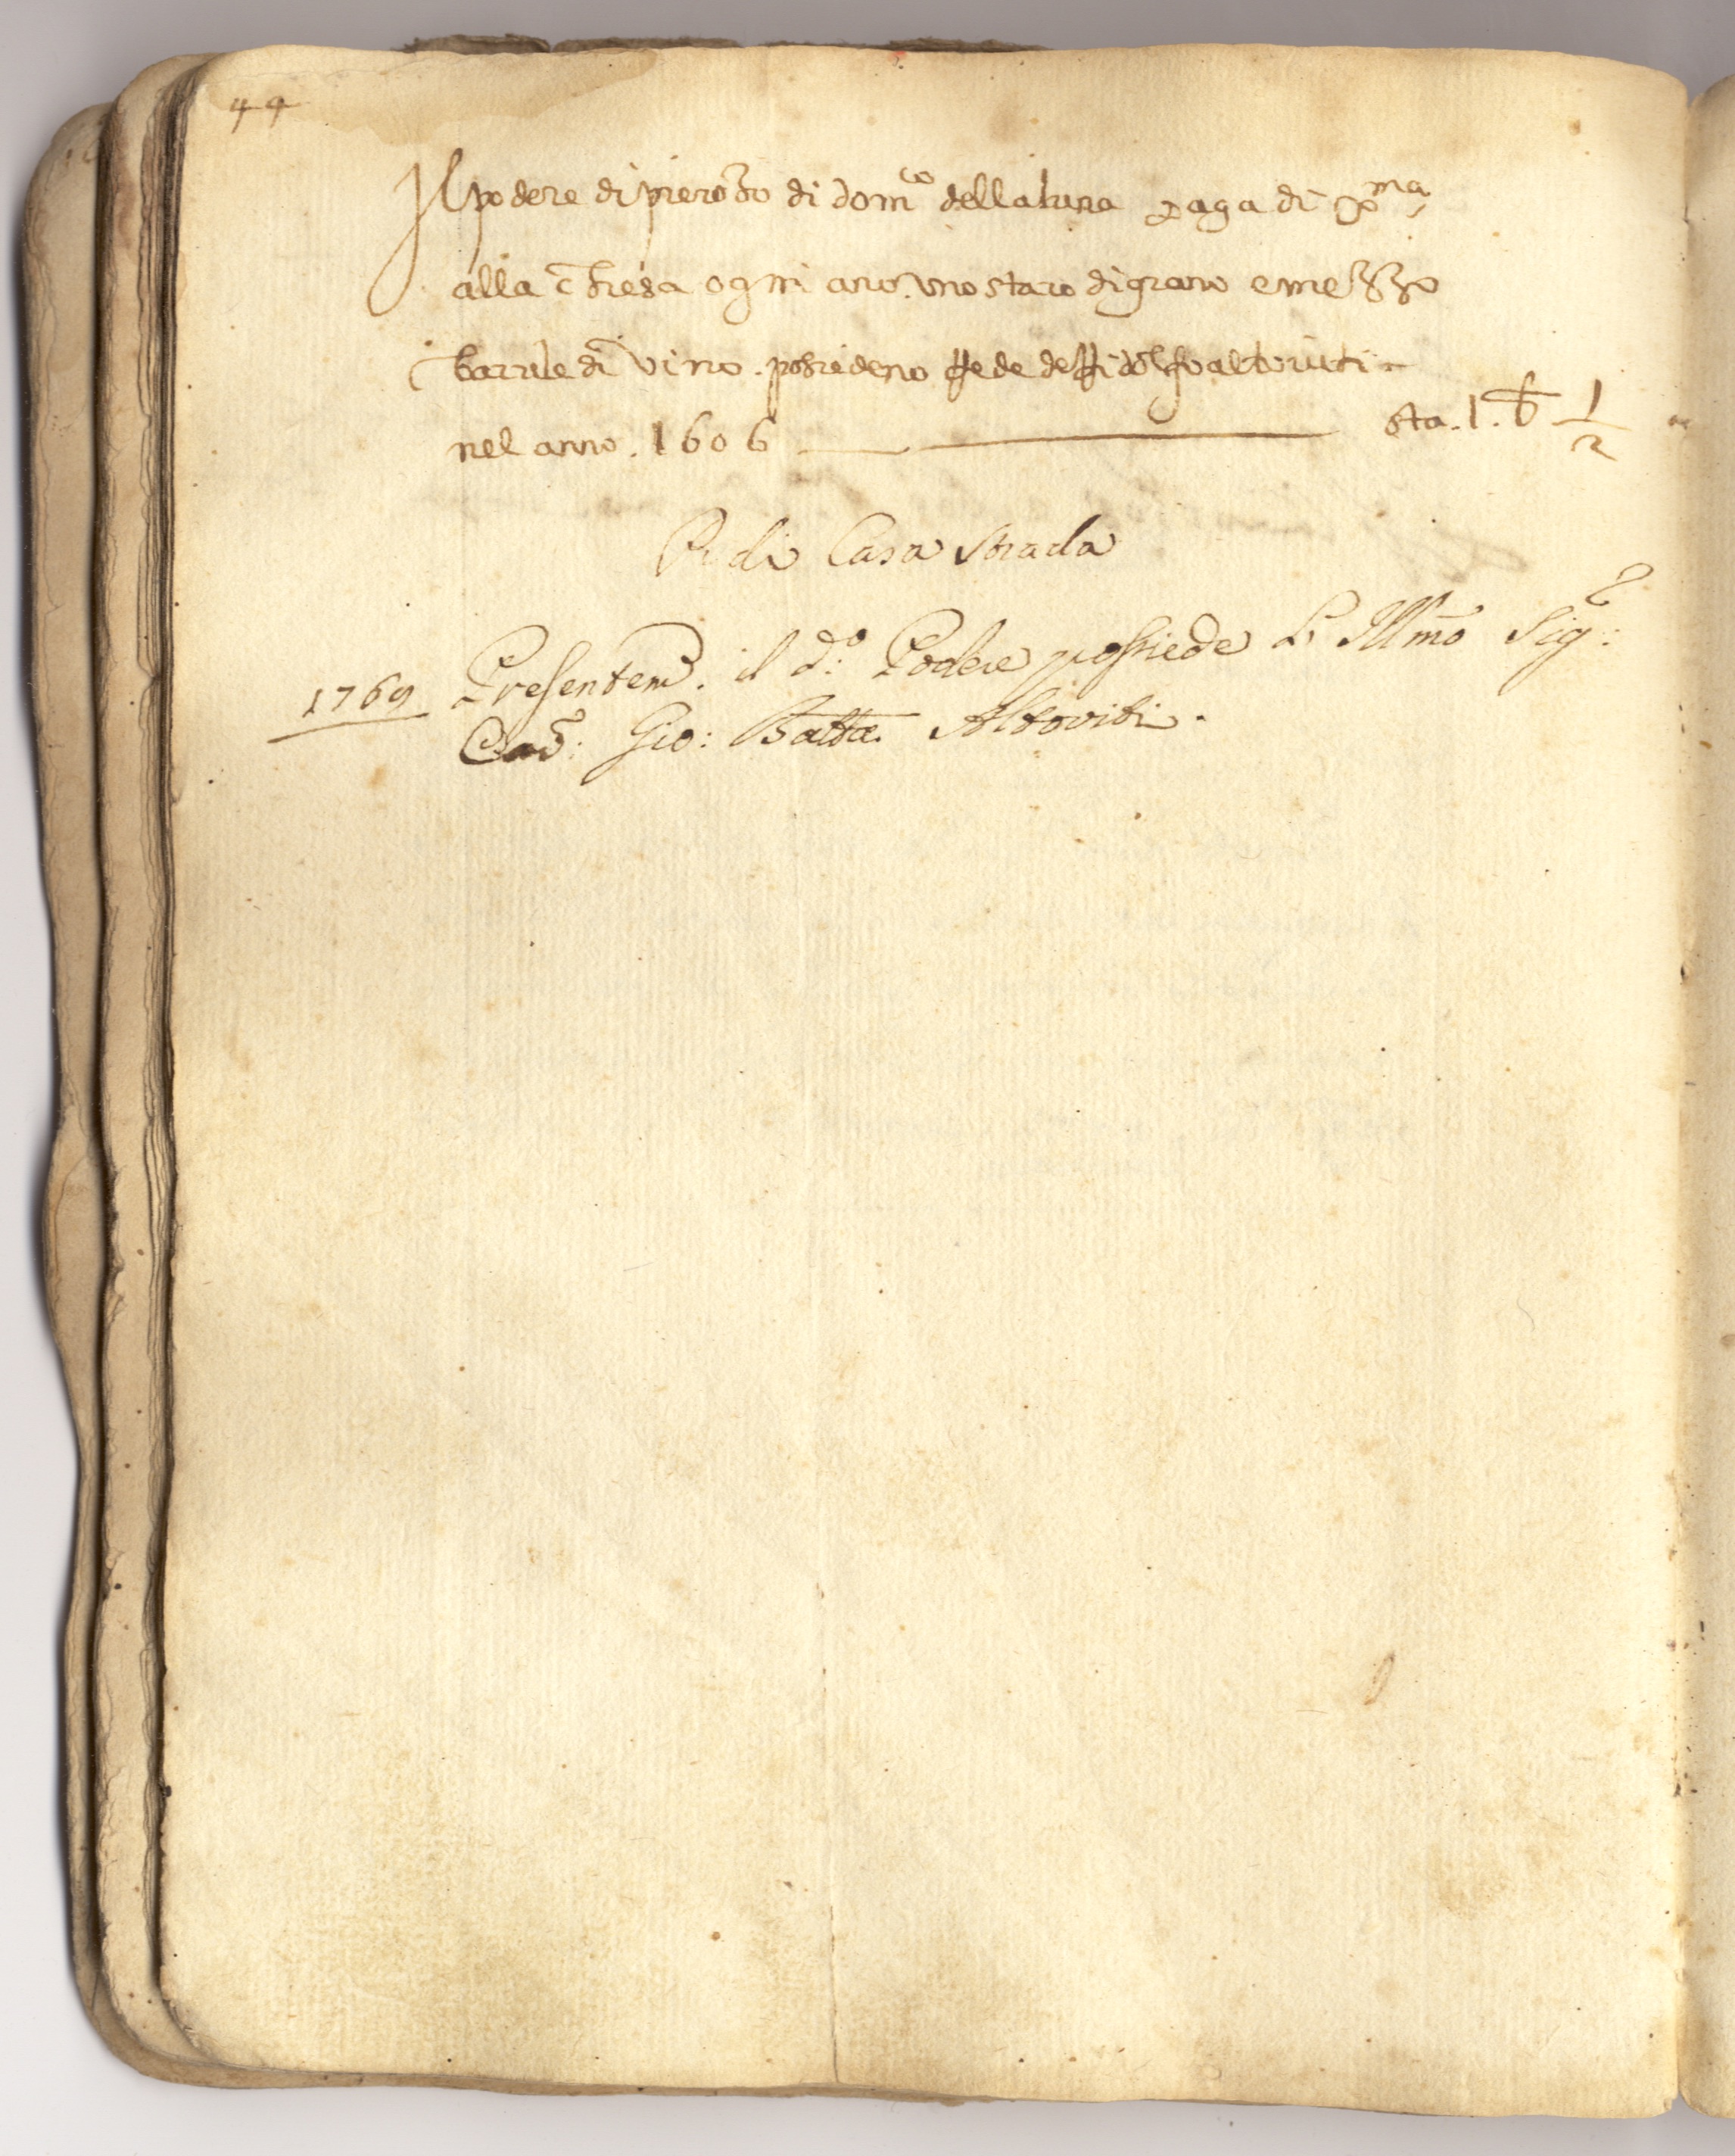 44
Il podere di pierozo di dom.co della luna paga di Xma
alla chiesa ogni ano. uno staro di grano e mezzo
barrile di vino. possiedeno rede de altoviti
nel anno. 1606 sta. 1. b 1/2
P. di Casa Strada
1769 Presentem. il d:o Podere possiede L' Illmo Sig:e
Cav: Gio: Batta. Altoviti.